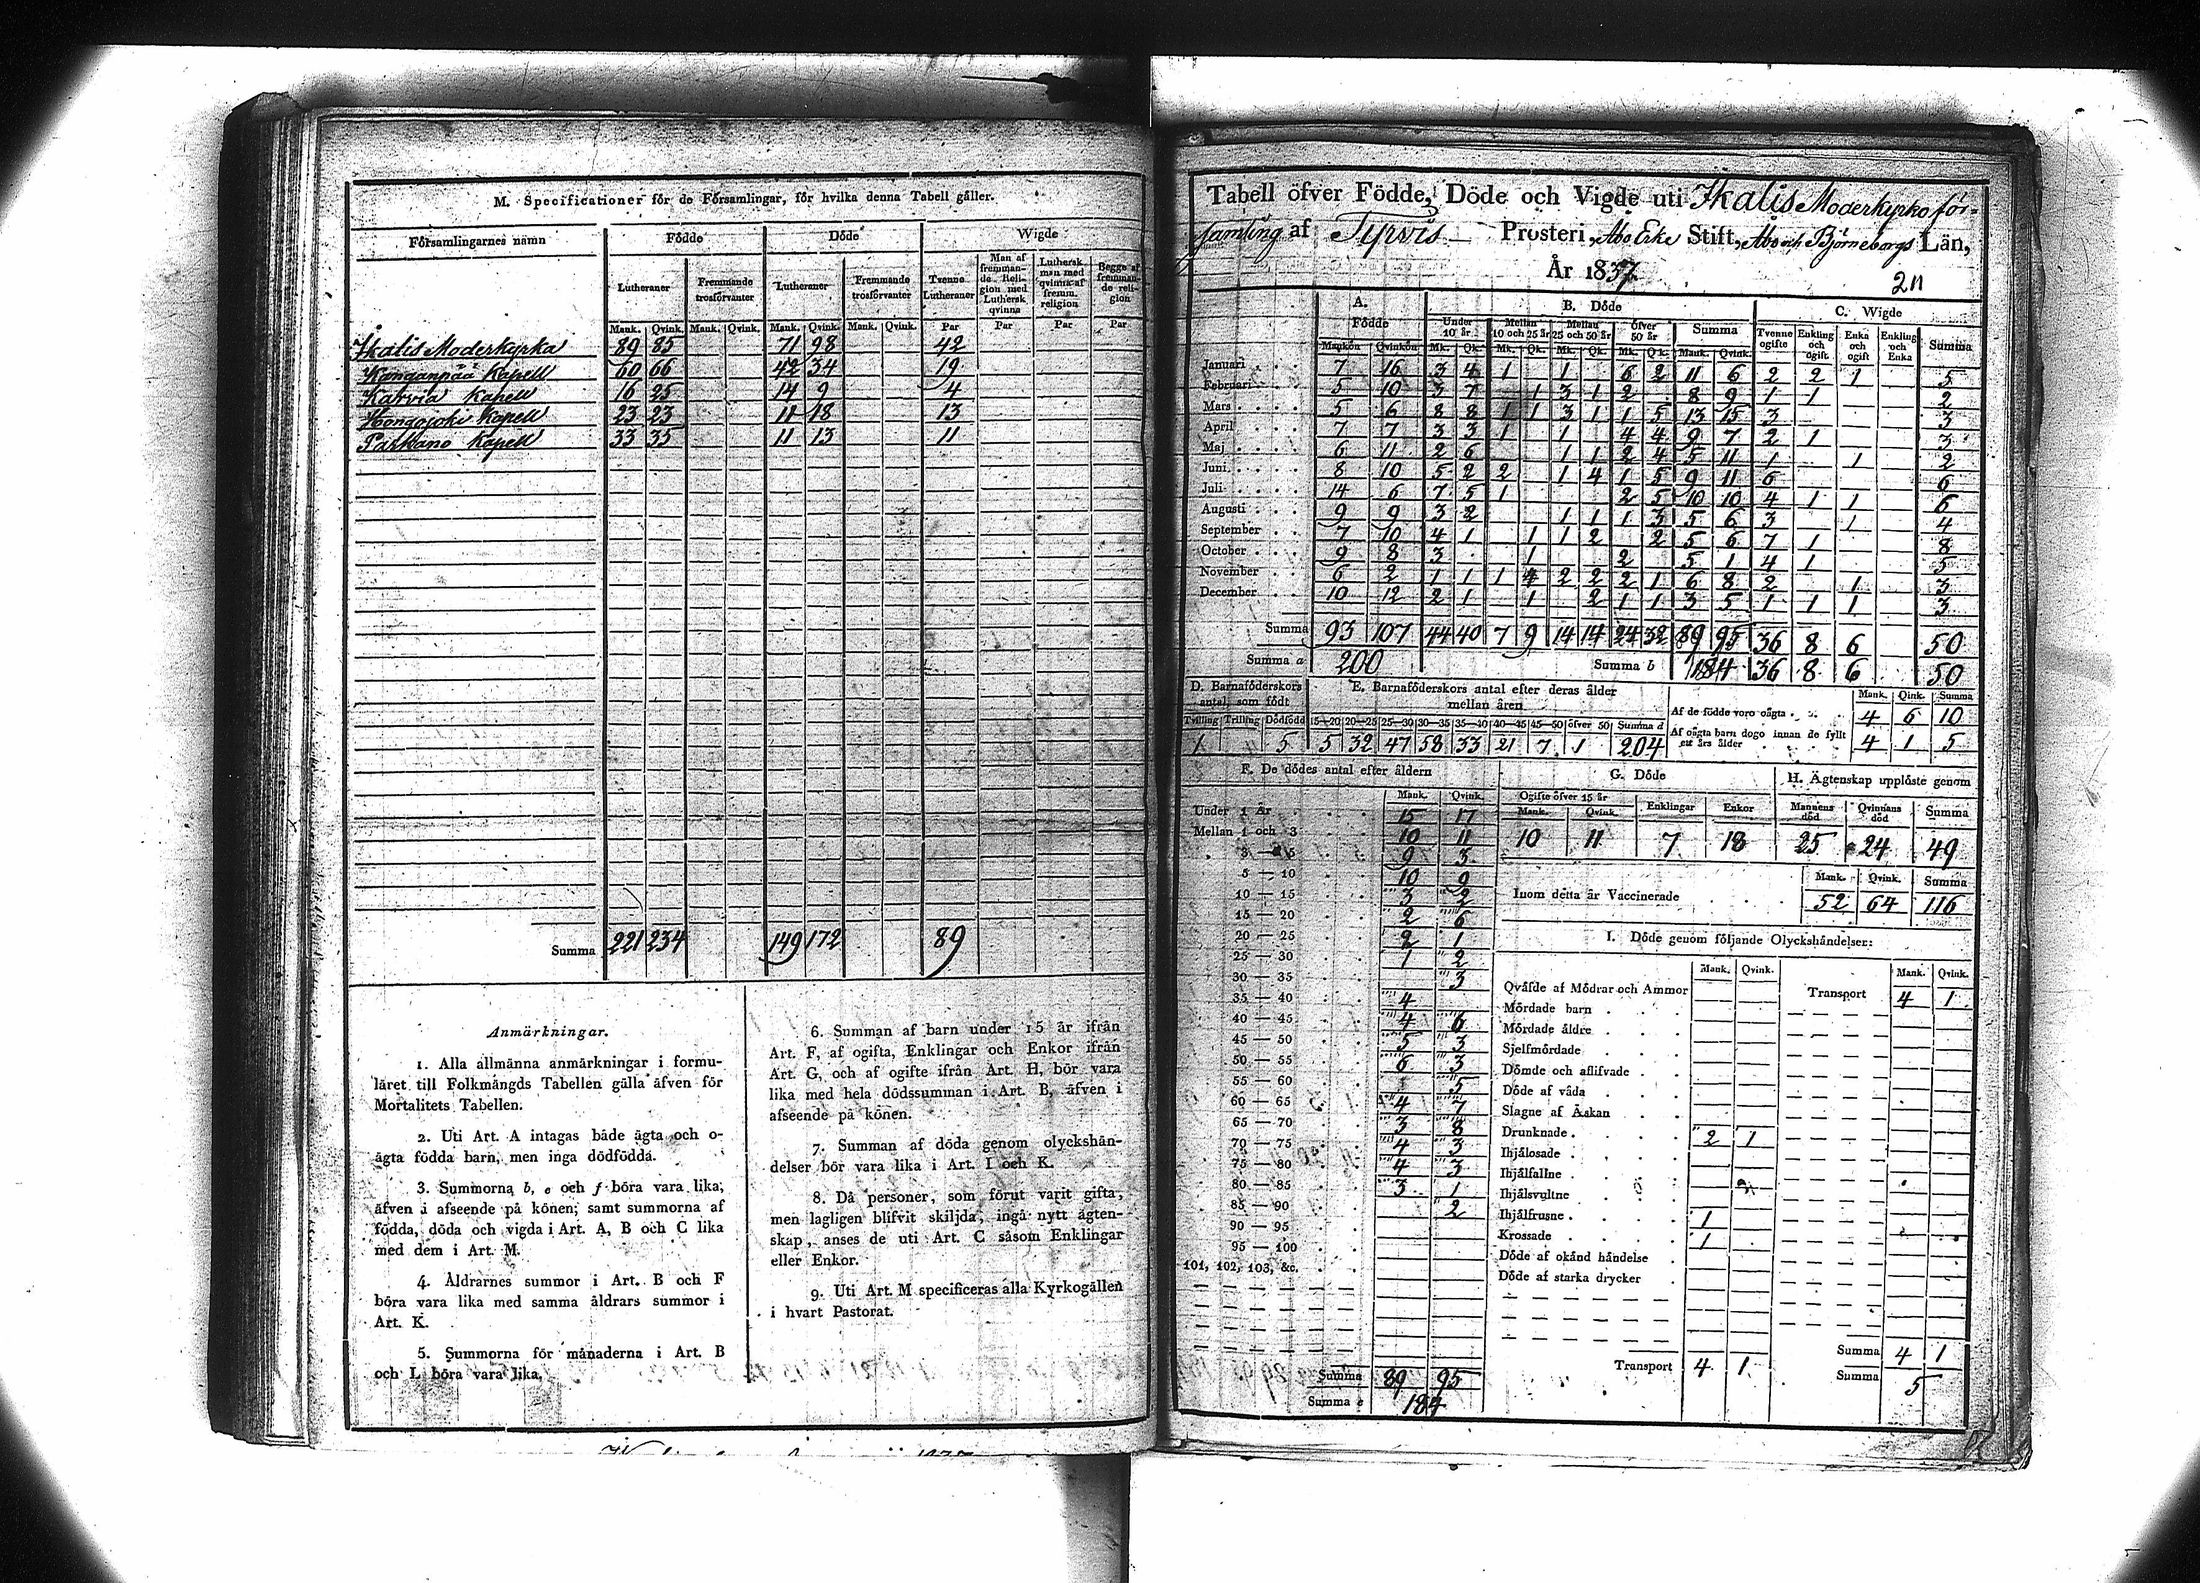 M. Specificationer för de Församlingar, för hvilka denna Tabell gäller.
Församlingarnes namn | Födde | Döde | Wigde
Lutheraner | Fremmande trosförvanter | Lutheraner | Fremmande trosförvanter | Tvenne Lutheraner | Man af fremmande Religion med Luthersk qvinna | Luthersk man med qvinna af fremm. religion | Begge af fremmande religion
Mank. | Qvink. | Mank. | Qvink. | Mank. | Qvink. | Mank. | Qvink. | Par | Par | Par | Par
Ikalis Moderkyrka 89 85 71 98 42
Kanganpää Kapell 60 66 42 34 19
Karvia Kapell 16 25 14 9 4
Hongojoki Kapell 23 23 11 18 13
Parkano Kapell 33 35 11 13 11
Summa 221 234 149 172 89
Anmärkningar.
1. Alla allmänna anmärkningar i formu-
läret till Folkmängds Tabellen gälla äfven för
Mortalitets Tabellen.
2. Uti Art. A intagas både ägta och o-
ägta födda barn, men inga dödfödda.
3. Summorna b, e och f böra vara lika,
äfven i afseende på könen; samt summorna af
födda, döda och vigda i Art. A, B och C lika
med dem i Art. M.
4. Åldrarnes summor i Art. B och F
böra vara lika med samma åldrars summor i
Art. K.
5. Summorna för månaderna i Art. B
och L böra vara lika.
6. Summan af barn under 15 år ifrån
Art. F, af ogifta, Enklingar och Enkor ifrån
Art. G, och af ogifte ifrån Art. H, bör vara
lika med hela dödssumman i Art. B, äfven i
afseende på könen.
7. Summan af döda genom olyckshän-
delser bör vara lika i Art. I och K.
8. Då personer, som förut varit gifta,
men lagligen blifvit skiljda, ingå nytt ägten-
skap, anses de uti Art. C såsom Enklingar
eller Enkor.
9. Uti Art. M specificeras alla Kyrkogällen
i hvart Pastorat.
Tabell öfver Födde, Döde och Vigde uti Ikalis Moderkyrko för-
samling af Tyrvis Prosteri, Åbo Erke Stift, Åbo och Björneborgs Län,
År 1837.
211
A. Födde | B. Döde | C. Wigde
Under 10 år | Mellan 10 och 25 år | Mellan 25 och 50 år | Öfver 50 år | Summa | Tvenne ogifte | Enkling och ogift | Enka och ogift | Enkling och Enka | Summa
Mankön | Qvinkön | Mk. | Qk. | Mk. | Qk. | Mk. | Qk. | Mk. | Qk. | Mank. | Qvink.
Januari 7 16 3 4 1 1 6 2 11 6 2 2 1 5
Februari 5 10 3 7 1 3 1 2 8 9 1 1 2
Mars 5 6 8 8 1 1 3 1 1 5 13 15 3 3
April 7 7 3 3 1 1 4 4 9 7 2 1 3
Maj 6 11 2 6 1 1 2 4 5 11 1 1 2
Juni 8 10 5 2 2 1 4 1 5 9 11 6 6
Juli 14 6 7 5 1 2 5 10 10 4 1 1 6
Augusti 9 9 3 2 1 1 1 3 5 6 3 1 4
September 7 10 4 1 1 1 2 2 5 6 7 1 8
October 9 8 3 1 2 5 1 4 1 5
November 6 2 1 1 1 4 2 2 2 1 6 8 2 1 3
December 10 12 2 1 1 2 1 1 3 5 1 1 1 3
Summa 93 107 44 40 7 9 14 14 24 32 89 95 36 8 6 50
Summa a 200 Summa b 184 36 8 6 50
D. Barnaföderskors antal, som födt | E. Barnaföderskors antal efter deras ålder mellan åren | Mank. | Qink. | Summa
Tvilling | Trilling | Dödfödd | 15—20 | 20—25 | 25—30 | 30—35 | 35—40 | 40—45 | 45—50 | öfver 50 | Summa d
1 5 5 32 47 58 33 21 7 1 204
Af de födde voro oägta 4 6 10
Af oägta barn dogo innan de fyllt ett års ålder 4 1 5
F. De dödes antal efter åldern
Mank. Qvink.
Under 1 År 15 17
Mellan 1 och 3 10 11
3 — 5 9 3
5 — 10 10 9
10 — 15 3 2
15 — 20 2 6
20 — 25 2 1
25 — 30 1 2
30 — 35 3
35 — 40 4
40 — 45 4 6
45 — 50 5 3
50 — 55 6 3
55 — 60 5
60 — 65 4 7
65 — 70 3 8
70 — 75 4 3
75 — 80 4 3
80 — 85 3 1
85 — 90 2
90 — 95
95 — 100
101, 102, 103, &c.
Summa 89 95
Summa e 184
G. Döde | H. Ägtenskap upplöste genom
Ogifte öfver 15 år | Enklingar | Enkor | Mannens död | Qvinnans död | Summa
Mank. | Qvink.
10 11 7 18 25 24 49
Mank. | Qvink. | Summa
Inom detta år Vaccinerade 52 64 116
I. Döde genom följande Olyckshändelser:
Mank. Qvink. Mank. Qvink.
Qväfde af Mödrar och Ammor
Transport 4 1
Mördade barn
Mördade äldre
Sjelfmördade
Dömde och aflifvade
Döde af våda
Slagne af Åskan
Drunknade 2 1
Ihjälosade
Ihjälfallne
Ihjälsvultne
Ihjälfrusne 1
Krossade 1
Döde af okänd händelse
Döde af starka drycker
Transport 4 1
Summa 4 1
Summa 5